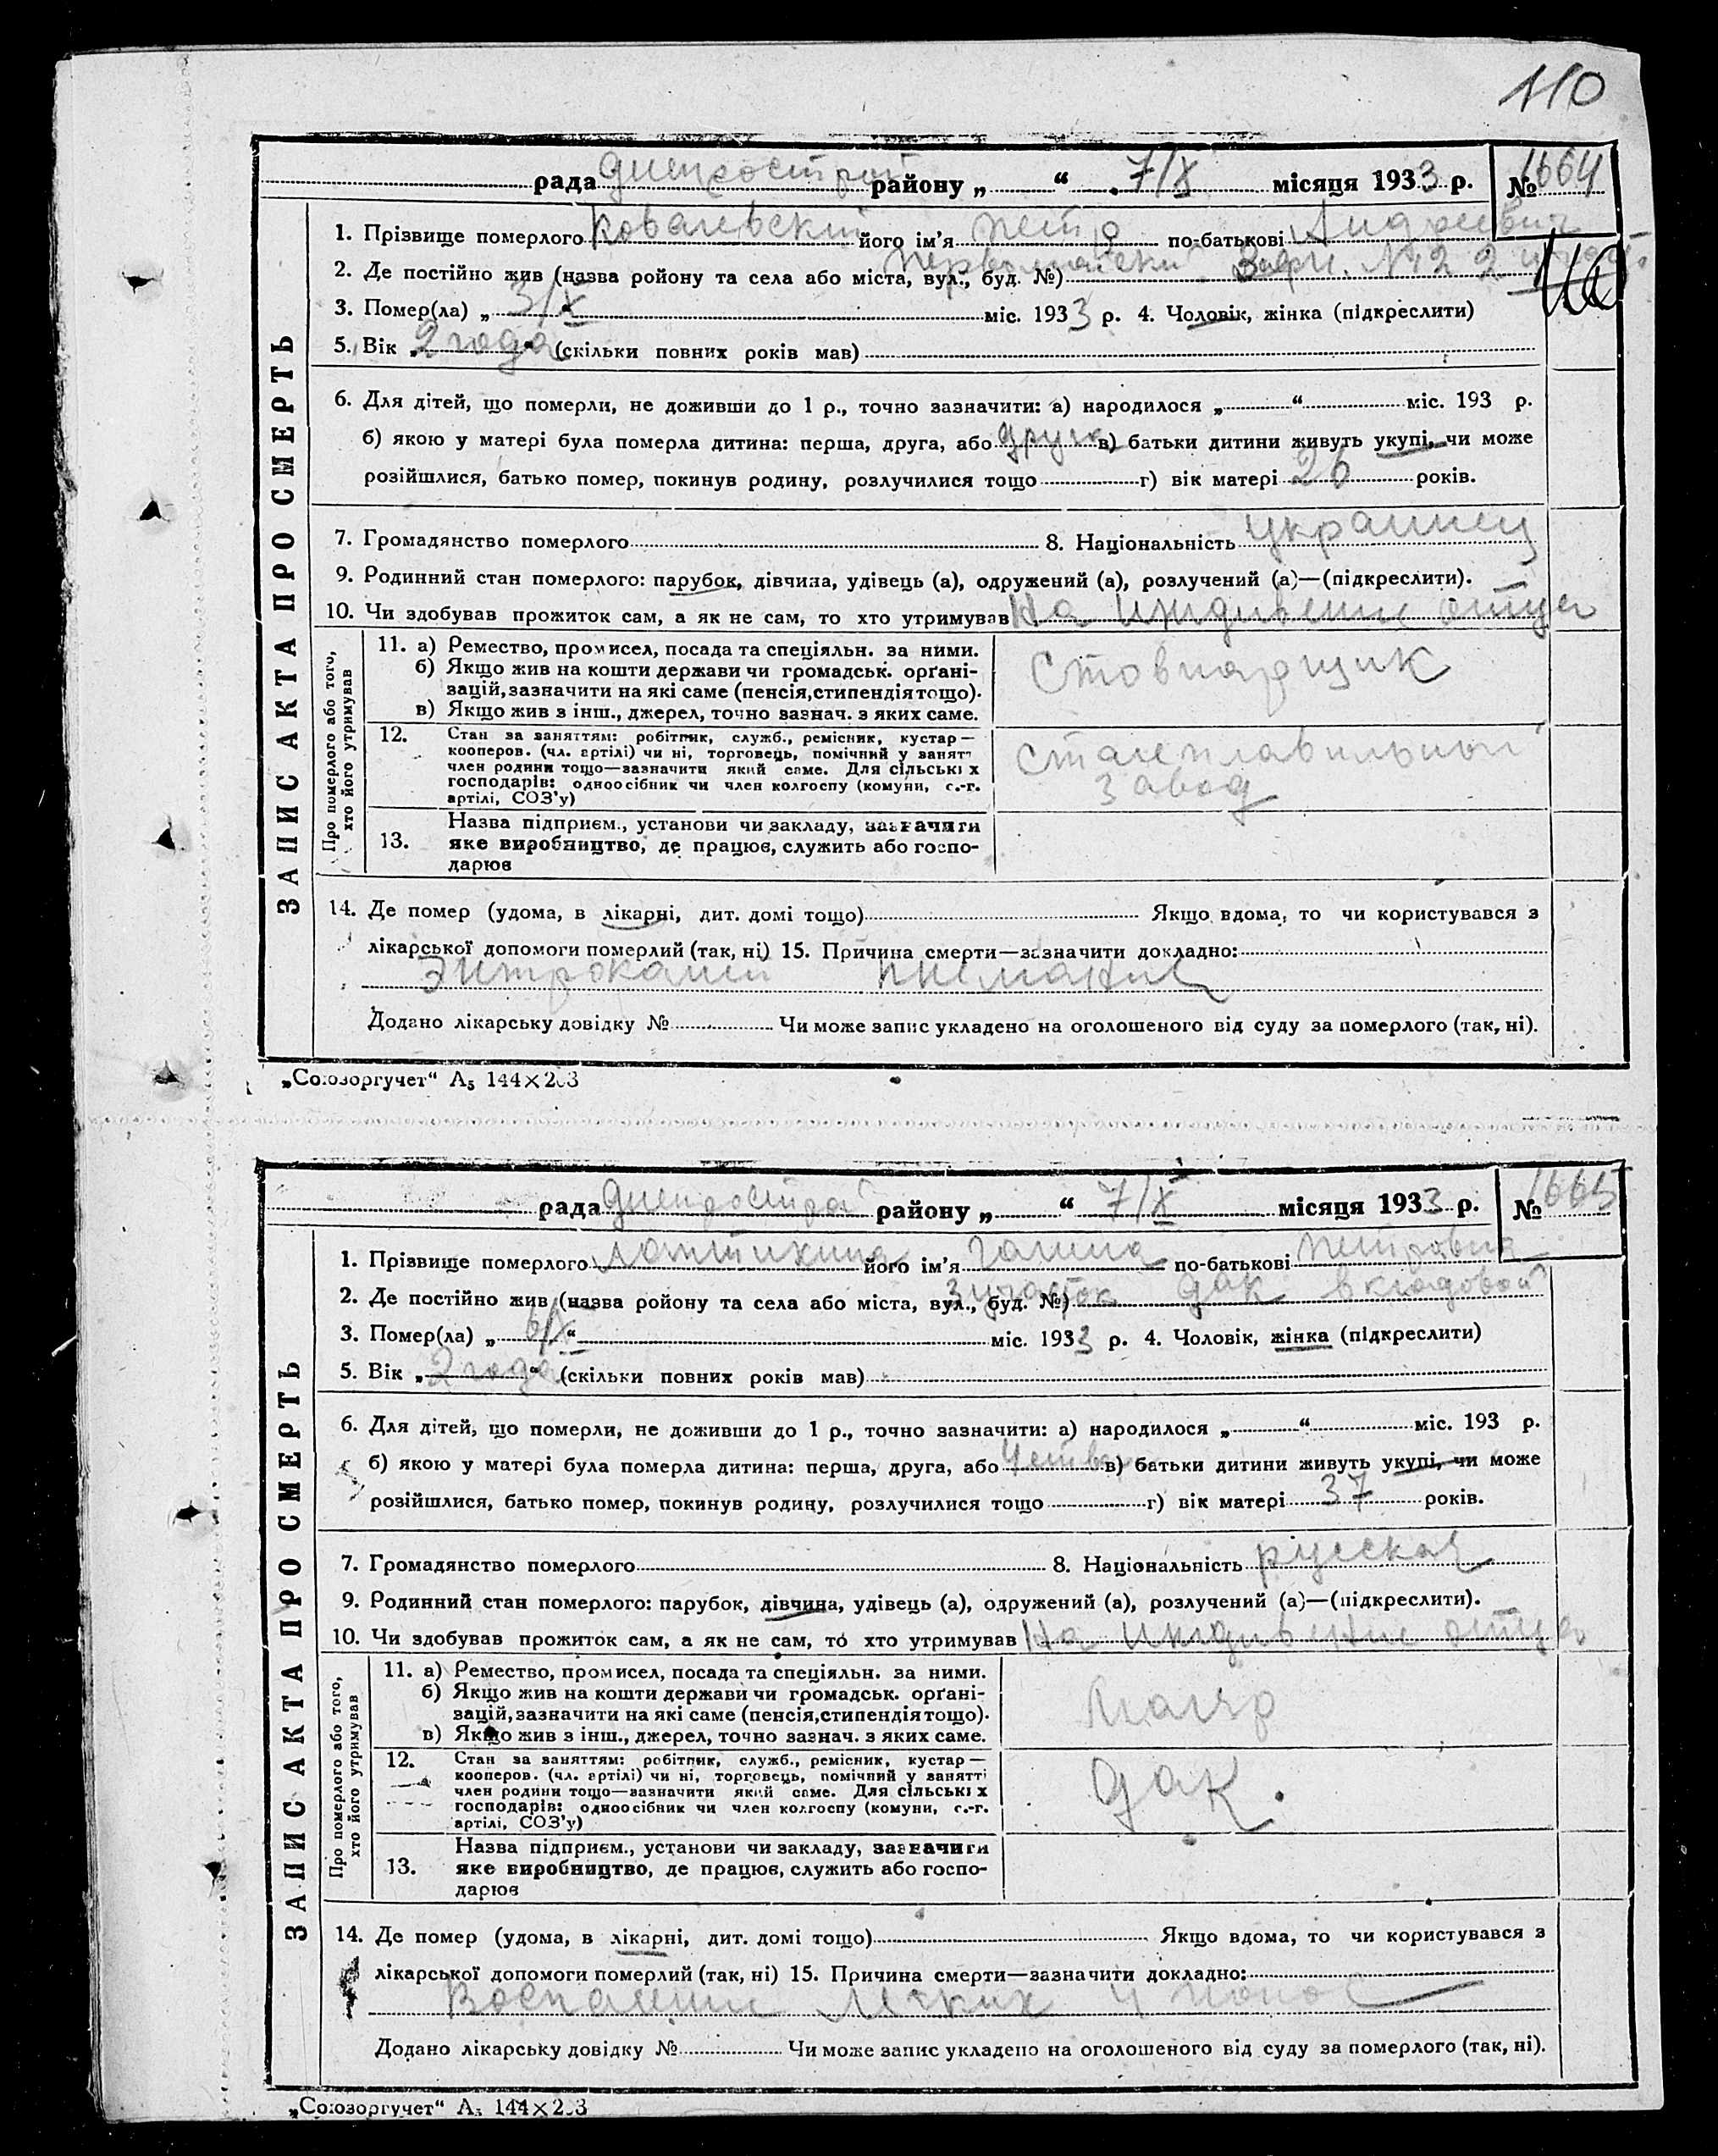 110
рада днепрострой району „ “ 7/X місяця 1933 р. № 1664
1. Прізвище померлого Ковалевский його ім’я Петр по-батькові Андреевич
2. Де постійно жив (назва ройону та села або міста, вул., буд. №) № 2 2
110
3. Помер(ла) „ 3/X “ міс. 1933 р. 4. Чоловік, жінка (підкреслити)
5. Вік „ 2 года “ (скільки повних років мав)
6. Для дітей, що померли, не доживши до 1 р., точно зазначити: а) народилося „ “ міс. 193 р.
б) якою у матері була померла дитина: перша, друга, або друга в) батьки дитини живуть укупі, чи може
розійшлися, батько помер, покинув родину, розлучилися тощо г) вік матері 26 років.
7. Громадянство померлого 8. Національність украинец
9. Родинний стан померлого: парубок, дівчина, удівець (а), одружений (а), розлучений (а)—(підкреслити).
10. Чи здобував прожиток сам, а як не сам, то хто утримував На иждивение отца
ЗАПИС АКТА ПРО СМЕРТЬ
Про померлого або того, хто його утримував
11. а) Ремество, промисел, посада та спеціяльн. за ними.
б) Якщо жив на кошти держави чи громадськ. орґані-
зацій, зазначити на які саме (пенсія, стипендія тощо).
в) Якщо жив з інш., джерел, точно зазнач. з яких саме.
12. Стан за заняттям: робітник, служб., ремісник, кустар—
кооперов. (чл. артілі) чи ні, торговець, помічний у занятті
член родини тощо—зазначити який саме. Для сільських
господарів: одноосібник чи член колгоспу (комуни, с.-г.
артілі, СОЗ’у)
Сталеплавильный
завод
13. Назва підприєм., установи чи закладу, зазначити
яке виробництво, де працює, служить або госпо-
дарює
14. Де помер (удома, в лікарні, дит. домі тощо) Якщо вдома, то чи користувався з
лікарської допомоги померлий (так, ні) 15. Причина смерти—зазначити докладно:
Додано лікарську довідку № Чи може запис укладено на оголошеного від суду за померлого (так, ні).
„Союзоргучет“ А₅ 144×203
рада Днепрострой району „ “ 7/X місяця 1933 р. № 1665
1. Прізвище померлого його ім’я Галина по-батькові Петровна
2. Де постійно жив (назва ройону та села або міста, вул., буд. №) 3 участок Дак в кладовой
3. Помер(ла) „ 6/X “ міс. 1933 р. 4. Чоловік, жінка (підкреслити)
5. Вік „ 2 года “ (скільки повних років мав)
6. Для дітей, що померли, не доживши до 1 р., точно зазначити: а) народилося „ “ міс. 193 р.
б) якою у матері була померла дитина: перша, друга, або в) батьки дитини живуть укупі, чи може
розійшлися, батько помер, покинув родину, розлучилися тощо г) вік матері 37 років.
7. Громадянство померлого 8. Національність русская
9. Родинний стан померлого: парубок, дівчина, удівець (а), одружений (а), розлучений (а)—(підкреслити).
10. Чи здобував прожиток сам, а як не сам, то хто утримував На иждивение отца
ЗАПИС АКТА ПРО СМЕРТЬ
Про померлого або того, хто його утримував
11. а) Ремество, промисел, посада та спеціяльн. за ними.
б) Якщо жив на кошти держави чи громадськ. орґані-
зацій, зазначити на які саме (пенсія, стипендія тощо).
в) Якщо жив з інш., джерел, точно зазнач. з яких саме.
12. Стан за заняттям: робітник, служб., ремісник, кустар—
кооперов. (чл. артілі) чи ні, торговець, помічний у занятті
член родини тощо—зазначити який саме. Для сільських
господарів: одноосібник чи член колгоспу (комуни, с.-г.
артілі, СОЗ’у)
Дак.
13. Назва підприєм., установи чи закладу, зазначити
яке виробництво, де працює, служить або госпо-
дарює
14. Де помер (удома, в лікарні, дит. домі тощо) Якщо вдома, то чи користувався з
лікарської допомоги померлий (так, ні) 15. Причина смерти—зазначити докладно:
Воспаление легких и понос
Додано лікарську довідку № Чи може запис укладено на оголошеного від суду за померлого (так, ні).
„Союзоргучет“ А₅ 144×203